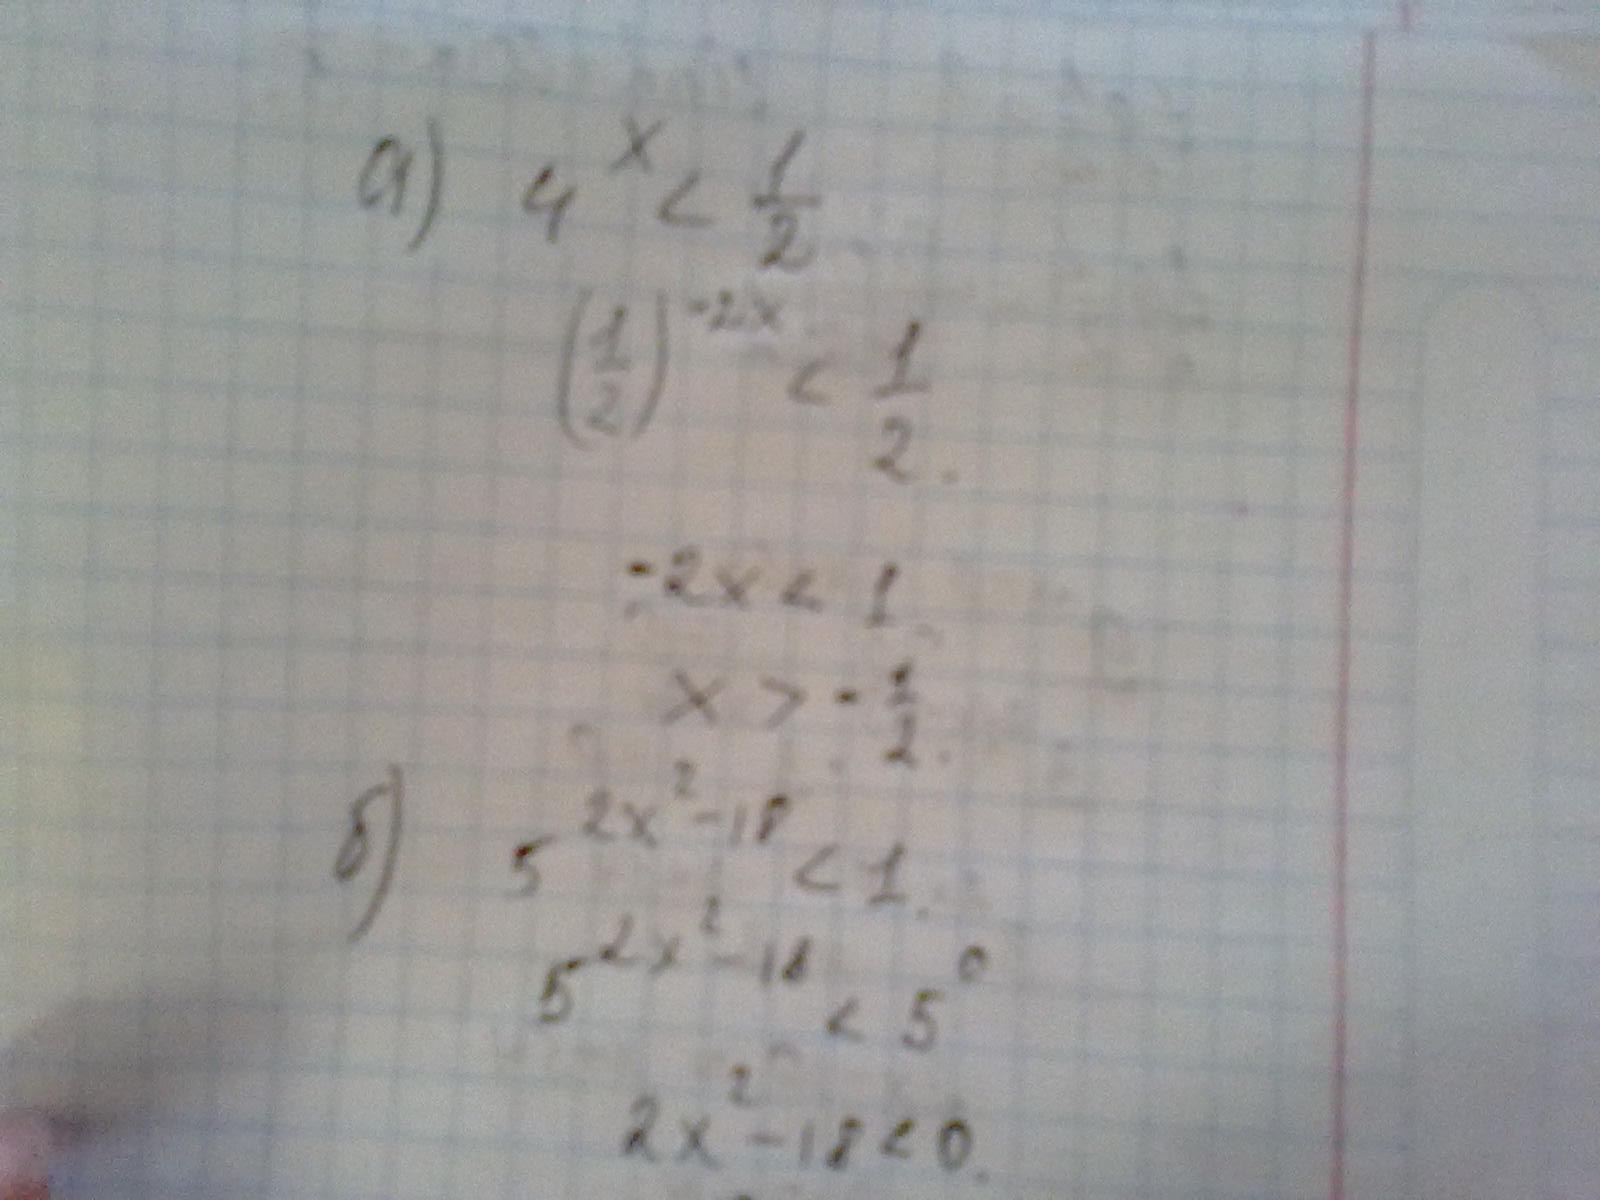 а) 4^x < 1/2
(1/2)^-2x < 1/2.
-2x < 1.
x > -1/2.
б) 5^2x²-18 < 1.
5^2x²-18 < 5^0
2x²-18 < 0.